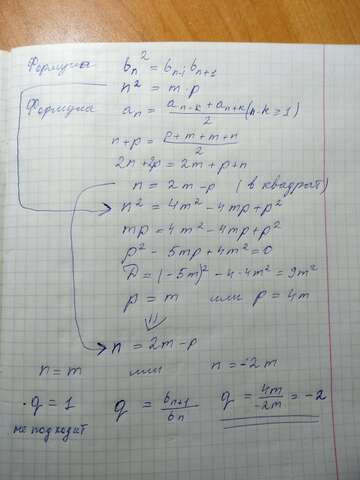 Формула b_n^2 = b_{n-1} b_{n+1}
n^2 = m·p
Формула a_n = \frac{a_{n-k} + a_{n+k}}{2} (n-k ≥ 1)
n+p = \frac{p+m+m+n}{2}
2n+2p = 2m+p+n
n = 2m-p (в квадрат)
n^2 = 4m^2-4mp+p^2
mp = 4m^2-4mp+p^2
p^2 - 5mp + 4m^2 = 0
D = (-5m)^2 - 4·4m^2 = 9m^2
p = m или p = 4m
n = 2m-p
n = m или n = -2m
·q = 1 q = \frac{b_{n+1}}{b_n} q = \frac{4m}{-2m} = -2
не подходит